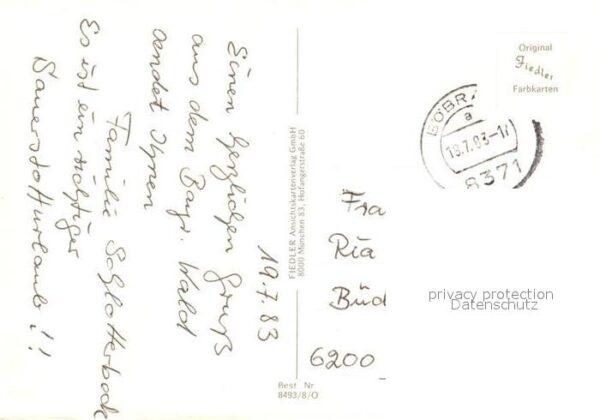 19.7.83
Einen herzlichen Gruß
aus dem Bayr. Wald
sendet Ihnen
Familie Schlotterbeck
Es ist ein richtiger
Dauersdotturlaub!!
FIEDLER Ansichtskartenverlag GmbH
8000 München 83, Hofangerstraße 60
Best Nr
8493/8/O
Original
Fiedler
Farbkarten
BÖBR
a
18.7.83-17
8371
Fra
Ria
Büd
6200
privacy protection
Datenschutz